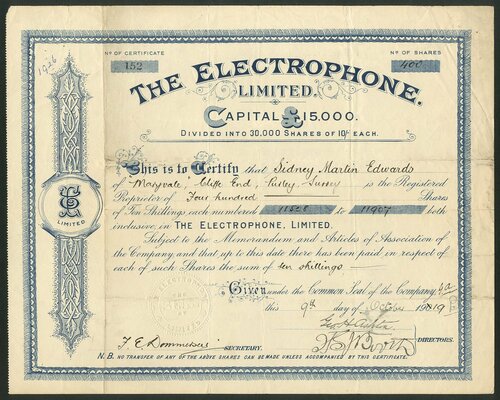 1926
Nº OF CERTIFICATE
152
Nº OF SHARES
400
THE ELECTROPHONE.
LIMITED.
CAPITAL £15,000.
DIVIDED INTO 30,000 SHARES OF 10/- EACH.
This is to Certify that Sidney Martin Edwards
of Maryvale, Cliffe End, Sussex is the Registered
Proprietor of Four hundred Shares
of Ten Shillings each numbered 11508 to 11907 both
inclusive, in THE ELECTROPHONE, LIMITED.
Subject to the Memorandum and Articles of Association of
the Company and that up to this date there has been paid in respect of
each of such Shares the sum of ten shillings
Given under the Common Seal of the Company,
this 9th day of October 1919
DIRECTORS.
SECRETARY.
N.B. NO TRANSFER OF ANY OF THE ABOVE SHARES CAN BE MADE UNLESS ACCOMPANIED BY THIS CERTIFICATE.
E
LIMITED